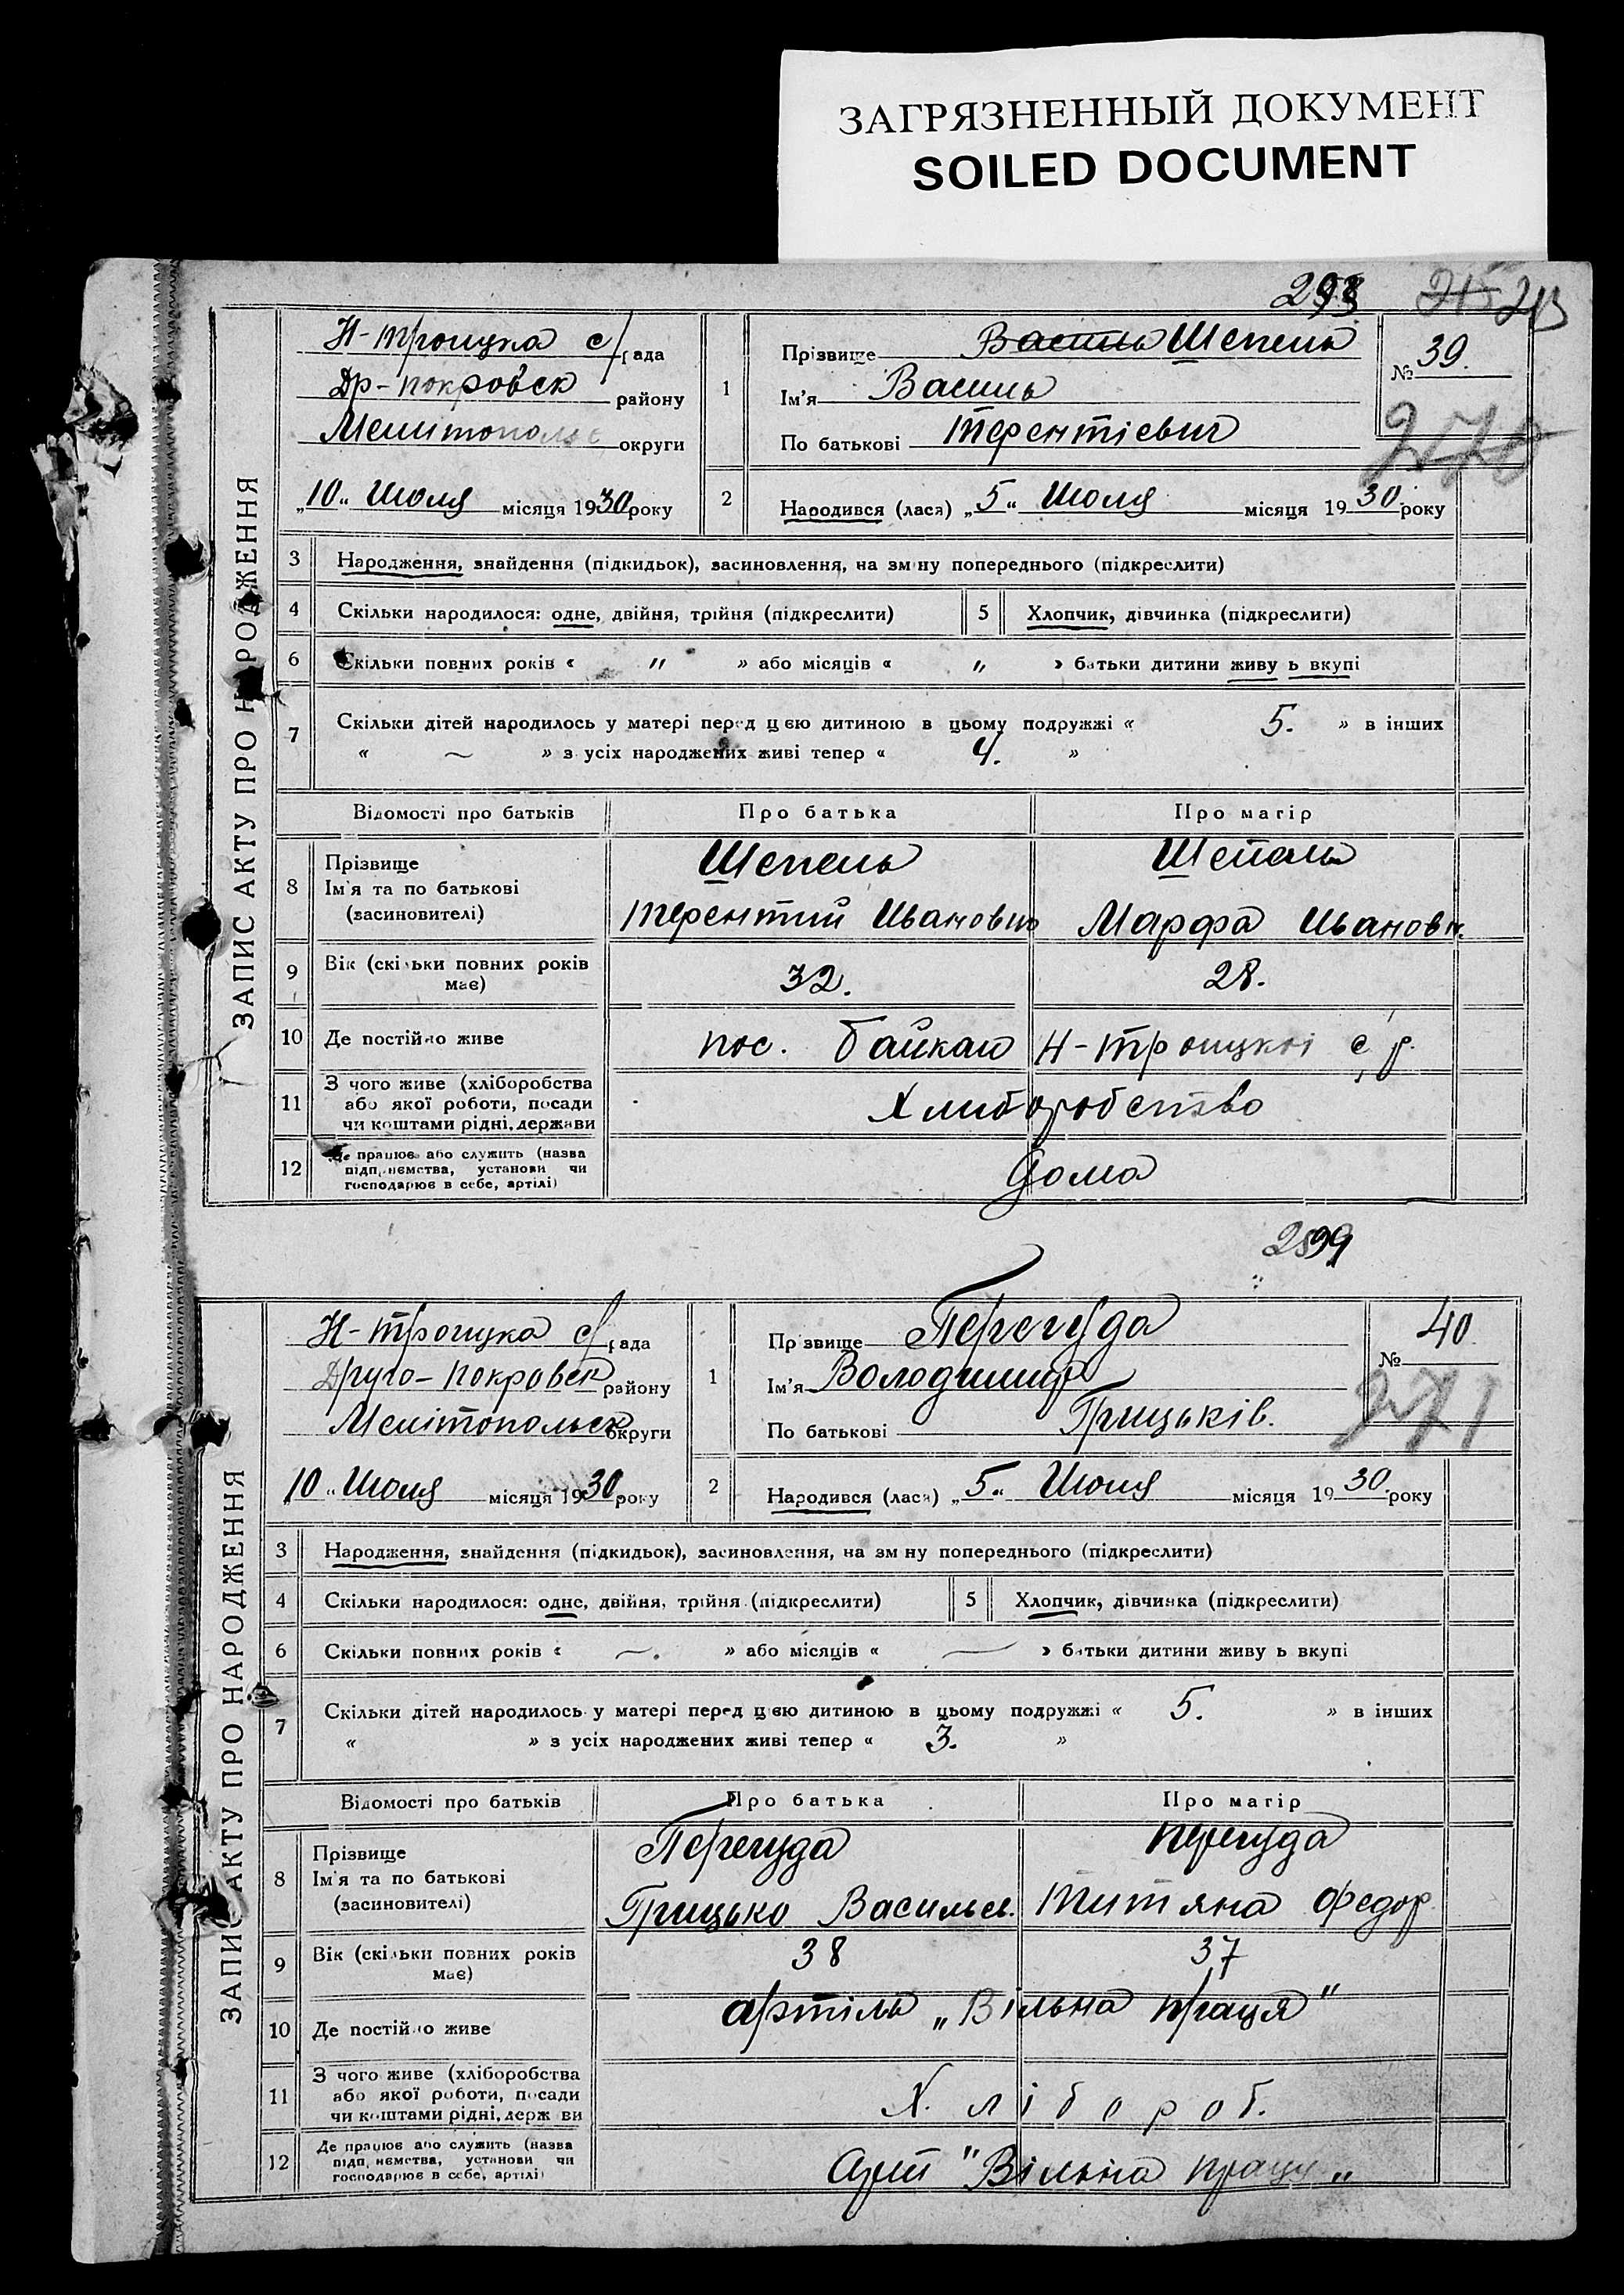 ЗАГРЯЗНЕННЫЙ ДОКУМЕНТ
SOILED DOCUMENT
ЗАПИС АКТУ ПРО НАРОДЖЕННЯ
Н-троицка с/рада
Др-покровск району
Мелитопольс округи
„10" Июля місяця 1930 року
1
Прізвище Василь Шепель
Ім'я Василь
По батькові Терентієвич
№ 39.
270
2
Народився (лася) „5" Июля місяця 1930 року
3 Народження, знайдення (підкидьок), засиновлення, на зміну попереднього (підкреслити)
4 Скільки народилося: одне, двійня, трійня (підкреслити) 5 Хлопчик, дівчинка (підкреслити)
6 Скільки повних років « " » або місяців « " » батьки дитини живуть вкупі
7 Скільки дітей народилось у матері перед цією дитиною в цьому подружжі « 5. » в інших
« ~ » з усіх народжених живі тепер « 4. »
Відомості про батьків Про батька Про матір
8 Прізвище Ім'я та по батькові (засиновителі)
Шепель Шепель
Терентий Иванович Марфа Ивановн.
9 Вік (скільки повних років має) 32. 28.
10 Де постійно живе пос. Байкаш Н-троицкоі с/р.
11 З чого живе (хліборобства або якої роботи, посади чи коштами рідні, держави
Хлиборобство
12 Де працює або служить (назва підприємства, установи чи господарює в себе, артілі)
дома
ЗАПИС АКТУ ПРО НАРОДЖЕННЯ
Н-троицка с/рада
Друго-покровск району
Мелітопольск округи
„10" Июля місяця 1930 року
1
Прізвище Перегуда
Ім'я Володимир
По батькові Грицьків.
№ 40
271
2
Народився (лася) „5" Июля місяця 1930 року
3 Народження, знайдення (підкидьок), засиновлення, на зміну попереднього (підкреслити)
4 Скільки народилося: одне, двійня, трійня (підкреслити) 5 Хлопчик, дівчинка (підкреслити)
6 Скільки повних років « ~. » або місяців « ~ » батьки дитини живуть вкупі
7 Скільки дітей народилось у матері перед цією дитиною в цьому подружжі « 5. » в інших
« » з усіх народжених живі тепер « 3. »
Відомості про батьків Про батька Про матір
8 Прізвище Ім'я та по батькові (засиновителі)
Перегуда Перегуда
Грицько Васильев. Титяна Федор.
9 Вік (скільки повних років має) 38 37
10 Де постійно живе артіль „Вільна праця"
11 З чого живе (хліборобства або якої роботи, посади чи коштами рідні, держави
Хлібороб.
12 Де працює або служить (назва підприємства, установи чи господарює в себе, артілі)
Арт "Вільна праця„